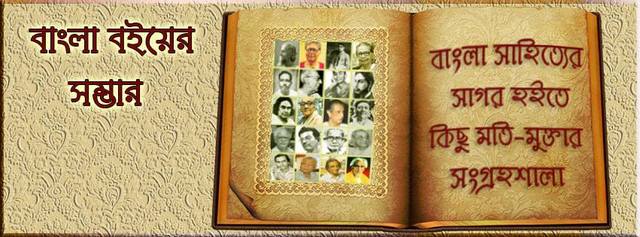 বাংলা বইয়ের
সম্ভার
বাংলা সাহিত্যের
সাগর হইতে
কিছু মতি-মুক্তার
সংগ্রহশালা